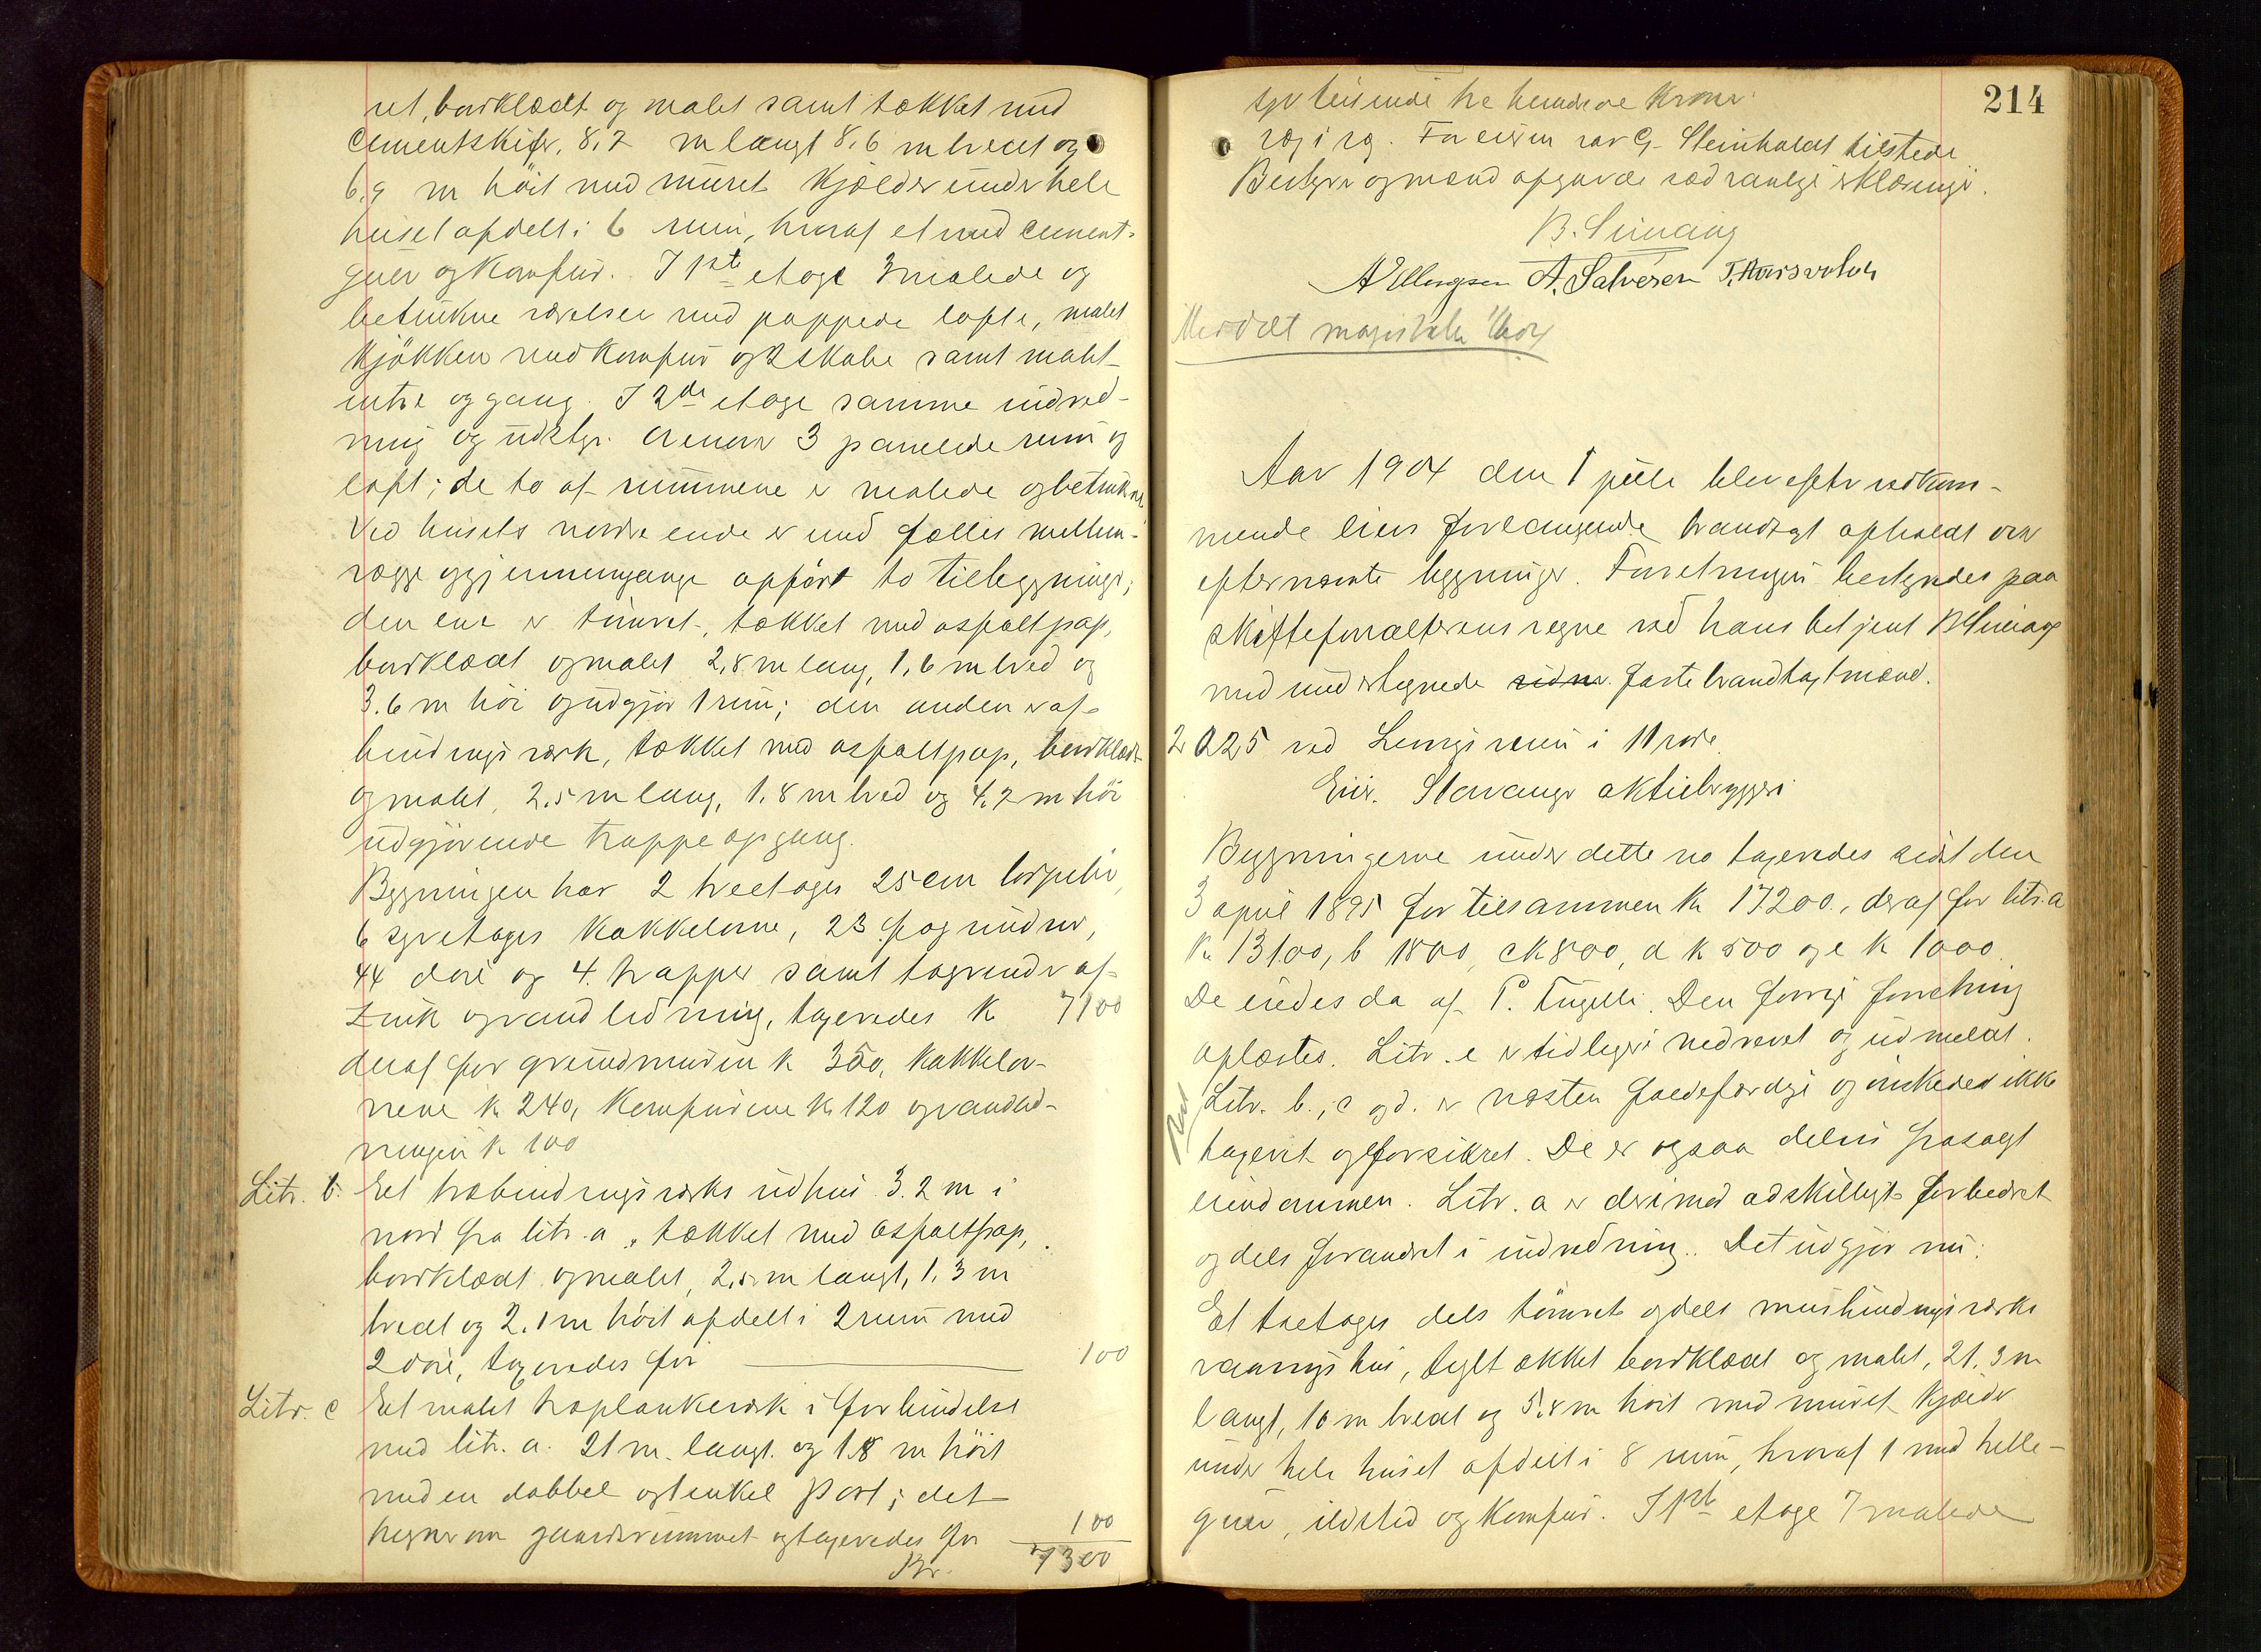 ret, bordklædt og malet samt tækket med
cementskifer, 8,7 m langt 8,6 m bredt og
6,9 m høit med muret kjælder under hele
huset afdelt i 6 rum, hvoraf et med cement-
gulv og komfur. I 1ste etage 3 malede og
betrukne værelser med pappede lofte, malet
kjøkken med komfur og 2 skabe samt malet
entre og gang. I 2den etage samme indred-
ning og udstyr. Ovenover 3 panelede rum og
loft; de to af rummene er malede og betrukne
Ved husets nordre ende er med fælles mellem-
vægge og gjennemgange opført to tilbygninger;
den ene er tømret, tækket med asfaltpap,
bordklædt og malet 2,8 m lang, 1,6 m bred og
3.6 m høi og udgjør 1 rum; den anden er af
bindingsværk, tækket med asfaltpap, bordklædt
og malet, 2.5 m lang, 1.8 m bred og 4.2 m høi
udgjørende trappeopgang.
Bygningen har 2 treetages 25 cm lodpiber,
6 syvetages kakkelovne, 23 fag vinduer,
44 døre og 4 trapper samt tagrender af
zink og vandledning, taxeredes K 7100
deraf for grundmuren k 350, kakkelov-
nene k 240, komfurene k 120 og vandled-
ningen k 100
Litr. b. Et træbindingsværks udhus 3.2 m i
nord fra litr. a, tækket med asfaltpap,
bordklædt og malet, 2,5 m langt, 1.3 m
bredt og 2.1 m høit afdelt i 2 rum med
2 døre, taxeredes for 100
Litr. c Et malet træplankeværk i forbindelse
med litr. a. 21 m. langt og 1.8 m høit
med en dobbel og 1 enkel port; det
hegner om gaardsrummet og taxeredes for 100
Kr. 7300
214
syv tusinde tre hundrede Kroner.
For eieren var G. Steinholdt tilstede
Bestyrer og mænd afgav de sædvanlige erklæringer.
A Ellingsen A. Salvesen T. Aarsvold
Meddelt magistraten
Aar 1904 den 1 juli blev efter vedkom-
mende eiers forlangende brandtaxt afholdt over
efternævnte bygninger. Forretningen bestyredes paa
skifteforvalterens vegne ved hans betjent
med undertegnede faste brandtaxtmænd.
2025 ved Lervigsveien i 11 rode
Eier. Stavanger aktiebryggeri
Bygningerne under dette no taxeredes sidst den
3 april 1895 for tilsammen Kr 17200, deraf for litr. a
Kr 13100, b 1800, c K 800, d k 500 og e k 1000
De eiedes da af P. Tugelli. Den forrige forretning
oplæstes. Litr. e er tidligere nedrevet og udmeldt.
Litr. b., c og d. er næsten faldefærdige og ønskedes ikke
taxeret og forsikret. De er ogsaa delvis frasolgt
eiendommen. Litr. a er derimod adskilligt forbedret
og dels forandret i indredning. Det udgjør nu:
Et toetages dels tømret og dels mur bindingsværks
vaaningshus, teglt ækket bordklædt og malet, 21.3 m
langt, 10 m bredt og 5.8 m høit med muret kjælder
under hele huset afdelt i 8 rum, hvoraf 1 med helle-
gulv, ildsted og komfur. I 1ste etage 7 malede